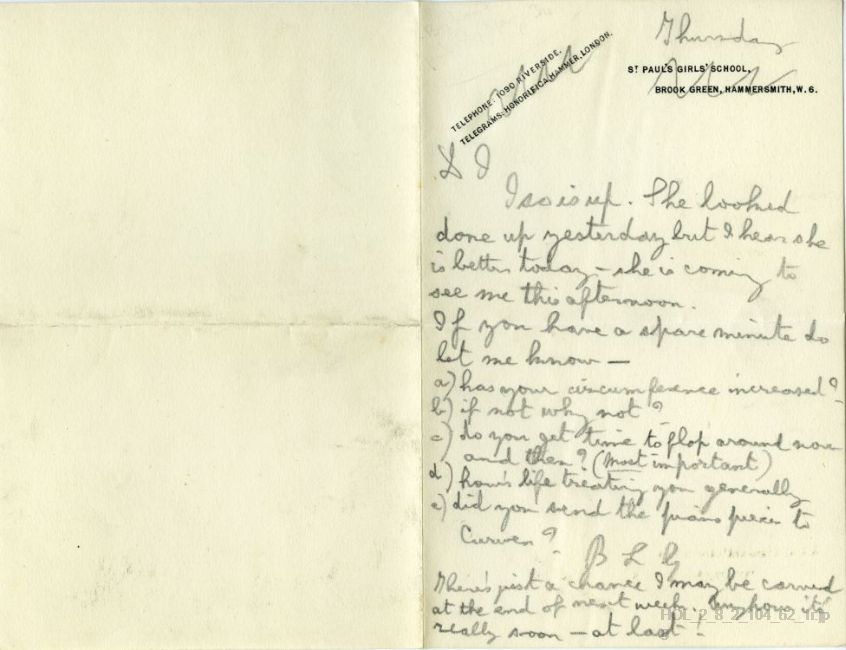 Thursday
TELEPHONE: 1090 RIVERSIDE.
TELEGRAMS: HONORIFICA, HAMMER, LONDON.
ST PAUL'S GIRLS' SCHOOL,
BROOK GREEN, HAMMERSMITH, W. 6.
D I
Iso is up. She looked
done up yesterday but I hear she
is better today – she is coming to
see me this afternoon.
If you have a spare minute do
let me know —
a) has your circumference increased?
b) if not why not?
c) do you get time to flop around now
and then? (Most important)
d) how's life treating you generally
e) did you send the piano pieces to
Curwen?
B L G
There's just a chance I may be
at the end of next week. Anyhow it's
really soon – at last!
HOL_2_8_2_104_62_1r.jp
g